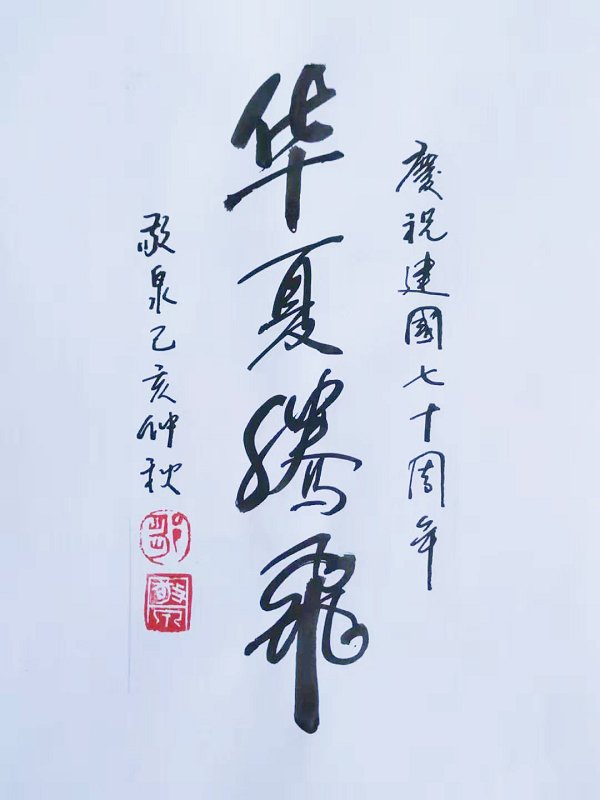 慶祝建國七十周年
华夏腾飛
敬泉己亥仲秋